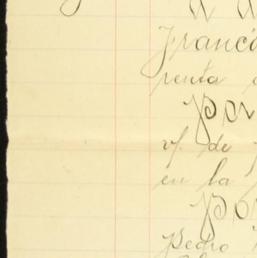 a a
Franc
penta
Por
vf. de
en la
Por
Pedro